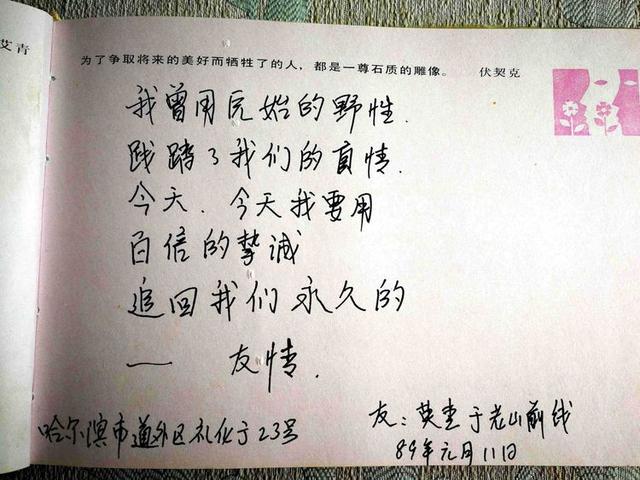 艾青
为了争取将来的美好而牺牲了的人，都是一尊石质的雕像。 伏契克
我曾用原始的野性.
践踏了我们的真情.
今天. 今天我要用
百倍的挚诚
追回我们永久的
— 友情.
哈尔滨市道外区礼化于23号
友：英奎于老山前线
89年元月11日